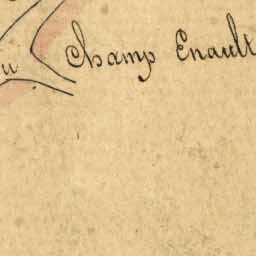 Champ Enault
u